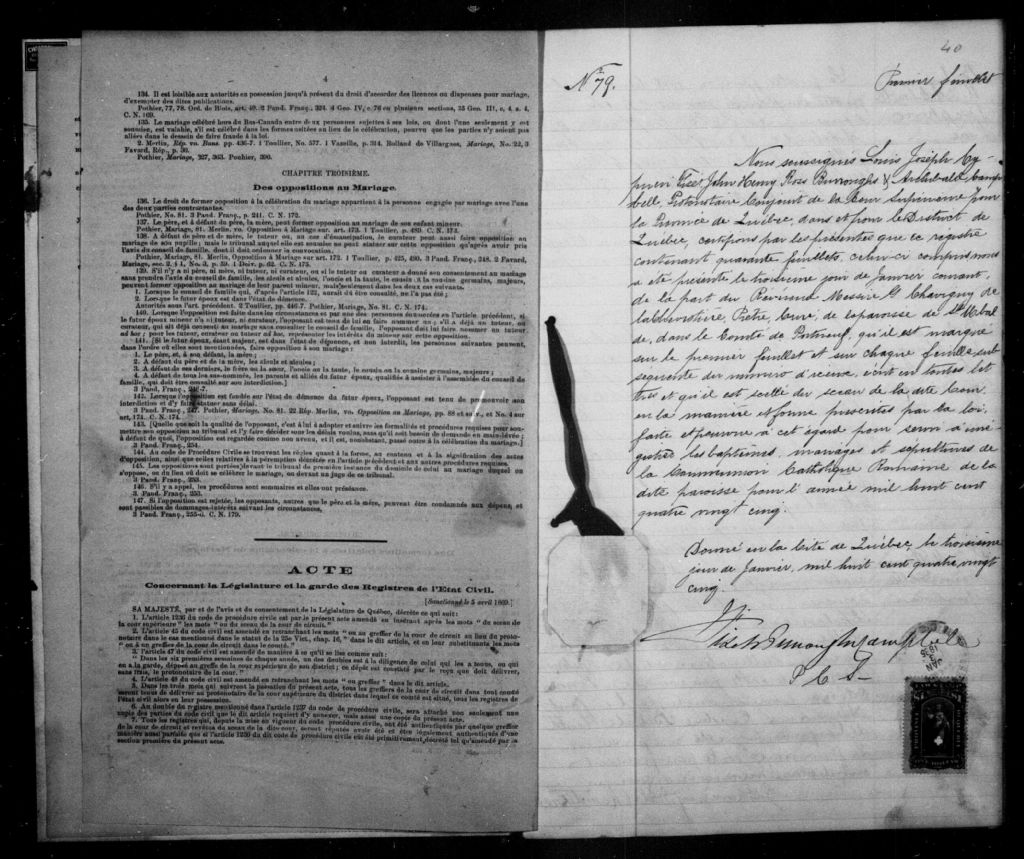 4
134. Il est loisible aux autorités en possession jusqu'à présent du droit d'accorder des licences ou dispenses pour mariage,
d'exempter des dites publications.
Pothier, 77, 78. Ord. de Blois, art. 40. 2 Pand. Franç., 324. 4 Geo. IV, c. 76 en plusieurs sections, 35 Geo. III, c. 4, s. 4,
C. N. 169.
135. Le mariage célébré hors du Bas-Canada entre deux personnes sujettes à ses lois, ou dont l'une seulement y est
soumise, est valable, s'il est célébré dans les formes usitées au lieu de la célébration, pourvu que les parties n'y soient pas
allées dans le dessein de faire fraude à la loi.
2. Merlin, Rép. vo. Bans. pp. 436-7. 1 Toullier, No. 577. 1 Vazeille, p. 314. Rolland de Villargues, Mariage, No. 22, 3
Favard, Rép., p. 30.
Pothier, Mariage, 327, 363. Pouhier, 390.
CHAPITRE TROISIÈME.
Des oppositions au Mariage.
136. Le droit de former opposition à la célébration du mariage appartient à la personne engagée par mariage avec l'une
des deux parties contractantes.
Pothier, No. 81. 3 Pand. Franç., p. 241. C. N. 172.
137. Le père, et à défaut du père, la mère, peut former opposition au mariage de son enfant mineur.
Pothier, Mariage, 81. Merlin, vo. Opposition à Mariage sur art. 173. 1 Toullier, p. 489. C. N. 173.
138. A défaut de père et de mère, le tuteur ou, au cas d'émancipation, le curateur peut aussi faire opposition au
mariage de son pupille; mais le tribunal auquel elle est soumise ne peut statuer sur cette opposition qu'après avoir pris
l'avis du conseil de famille, dont il doit ordonner la convocation.
Pothier, Mariage, 81. Merlin, Opposition à Mariage sur art. 172. 1 Toullier, p. 425, 490. 3 Pand. Franç., 248. 2 Favard,
Mariage, sec. 2. § 1, No. 3, p. 59. 1 Doiv., p. 62. C. N. 175.
139. S'il n'y a ni père, ni mère, ni tuteur, ni curateur, ou si le tuteur ou curateur a donné son consentement au mariage
sans prendre l'avis du conseil de famille, les aïeuls et aïeules, l'oncle et la tante, le cousin et la cousine germains, majeurs,
peuvent former opposition au mariage de leur parent mineur, mais seulement dans les deux cas suivants.
1. Lorsque le conseil de famille qui, d'après l'article 122, aurait dû être consulté, ne l'a pas été;
2. Lorsque le futur époux est dans l'état de démence.
Autorités sous l'art. précédent. 2 Toullier, pp. 446-7. Pothier, Mariage, No. 81. C. N. 174.
140. Lorsque l'opposition est faite dans les circonstances et par une des personnes énoncées en l'article précédent, si
le futur époux mineur n'a ni tuteur, ni curateur, l'opposant est tenu de lui en faire nommer un; s'il a déjà un tuteur, ou
curateur, qui ait déjà consenti au mariage sans consulter le conseil de famille, l'opposant doit lui faire nommer un tuteur
ad hoc; pour les tuteur, curateur ou tuteur ad hoc, représenter les intérêts du mineur sur cette opposition.
141. [Si le futur époux, étant majeur, est dans l'état de démence, et non interdit, les personnes suivantes peuvent,
dans l'ordre où elles sont mentionnées, faire opposition à son mariage:
1. Le père, et, à son défaut, la mère;
2. A défaut du père et de la mère, les aïeuls et aïeules;
3. A défaut de ces derniers, le frère ou la sœur, l'oncle ou la tante, le cousin ou la cousine germains, majeurs;
4. A défaut de tous les sus-nommés, les parents et alliés du futur époux, qualifiés à assister à l'assemblée du conseil de
famille, qui doit être consulté sur son interdiction.]
3 Pand. Franç., 246-7.
142. Lorsque l'opposition est fondée sur l'état de démence du futur époux, l'opposant est tenu de promouvoir son
interdiction et d'y faire statuer sans délai.
3 Pand. Franç., 247. Pothier, Mariage, No. 81. 22 Rép. Merlin, vo. Opposition au Mariage, pp. 88 et suiv., et No. 4 sur
art. 174. C. N. 174.
143. [Quelle que soit la qualité de l'opposant, c'est à lui à adopter et suivre les formalités et procédures requises pour sou-
mettre son opposition au tribunal et l'y faire décider sous les délais voulus, sans qu'il soit besoin de demande en main-levée;
à défaut de quoi, l'opposition est regardée comme non avenue, et il est, nonobstant, passé outre à la célébration du mariage.]
3 Pand. Franç., 254.
144. Au code de Procédure Civile se trouvent les règles quant à la forme, au contenu et à la signification des actes
d'opposition, ainsi que celles relatives à la péremption décrétée en l'article précédent et aux autres procédures requises.
145. Les oppositions sont portées devant le tribunal de première instance du domicile de celui au mariage duquel on
s'oppose, ou du lieu où doit se célébrer le mariage, ou devant un juge de ce tribunal.
3 Pand. Franç., 253.
146. S'il y a appel, les procédures sont sommaires et elles ont préséance.
3. Pand. Franç., 253.
147. Si l'opposition est rejetée, les opposants, autres que le père et la mère, peuvent être condamnés aux dépens, et
sont passibles de dommages-intérêts suivant les circonstances.
3 Pand. Franç., 255-6. C. N. 179.
ACTE
Concernant la Législature et la garde des Registres de l'Etat Civil.
[Sanctionné le 5 avril 1869.]
SA MAJESTÉ, par et de l'avis et du consentement de la Législature de Québec, décrète ce qui suit:
1. L'article 1236 du code de procédure civile est par le présent acte amendé en insérant après les mots "du sceau de
la cour supérieure" les mots "ou du sceau de la cour de circuit."
2. L'article 45 du code civil est amendé en retranchant les mots "ou au greffier de la cour de circuit au lieu du proto-
notaire dans le cas mentionné dans le statut de la 25e Vict., chap. 16," dans le dit article, et en leur substituant les mots
"ou à un greffier de la cour de circuit dans le comté."
3. l'article 47 du code civil est amendé de manière à ce qu'il se lise comme suit:
"Dans les six premières semaines de chaque année, un des doubles est à la diligence de celui qui les a tenus, ou qui
en a la garde, déposé au greffe de la cour supérieure de son district; ce dépôt est constaté par le reçu que doit délivrer,
sans frais, le protonotaire de la cour."
4. L'article 48 du code civil est amendé en retranchant les mots "ou greffier" dans le dit article.
5. Dans les trois mois qui suivront la passation du présent acte, tous les greffiers de la cour de circuit dans tout comté
seront tenus de délivrer au protonotaire de la cour supérieure du district dans lequel ce comté est situé, tous les registres de
l'état civil alors en leur possession.
6. Au double du registre mentionné dans l'article 1237 du code de procédure civile, sera attaché non seulement une
copie des parties du code civil que le dit article requiert d'y annexer, mais aussi une copie du présent acte.
7. Tous les registres qui, depuis la mise en vigueur du code de procédure civile, ont été authentiqués par quelque greffier
de la cour de circuit et revêtus du sceau de la dite cour, seront réputés avoir été et être légalement authentiqués d'une
manière aussi parfaite que si l'article 1236 du dit code de procédure civile eut été primitivement décrété tel qu'amendé par la
section première du présent acte.
40
No 79.
Premier feuillet
Nous soussignés Louis Joseph Cy-
prien Fiset, John Henry Ross Burroughs & Archibald Camp-
bell, Protonotaire Conjoint de la Cour Supérieure pour
la Province de Québec, dans et pour le District de
Québec, certifions par les présentes que ce registre
contenant quarante feuillets, celui-ci compris nous
a été présenté le troisième jour de Janvier courant,
de la part du Révérend Messire
Prêtre, Curé, de la paroisse de St. Ubal
de, dans le Comté de Portneuf, qu'il est marqué
sur le premier feuillet et sur chaque feuillet sub
séquent du numéro d'icelui, écrit en toutes let
tres et qu'il est scellé du sceau de la dite Cour,
en la manière et forme prescrites par la loi,
faite et pourvue à cet égard pour servir à enre-
gistrer les baptêmes, mariages et sépultures de
la Communion Catholique Romaine de la
dite paroisse pour l'année mil huit cent
quatre vingt cinq.
Donné en la Cité de Québec, le troisième
jour de Janvier, mil huit cent quatre vingt
cinq.
Fiset Burroughs Campbell
P C S